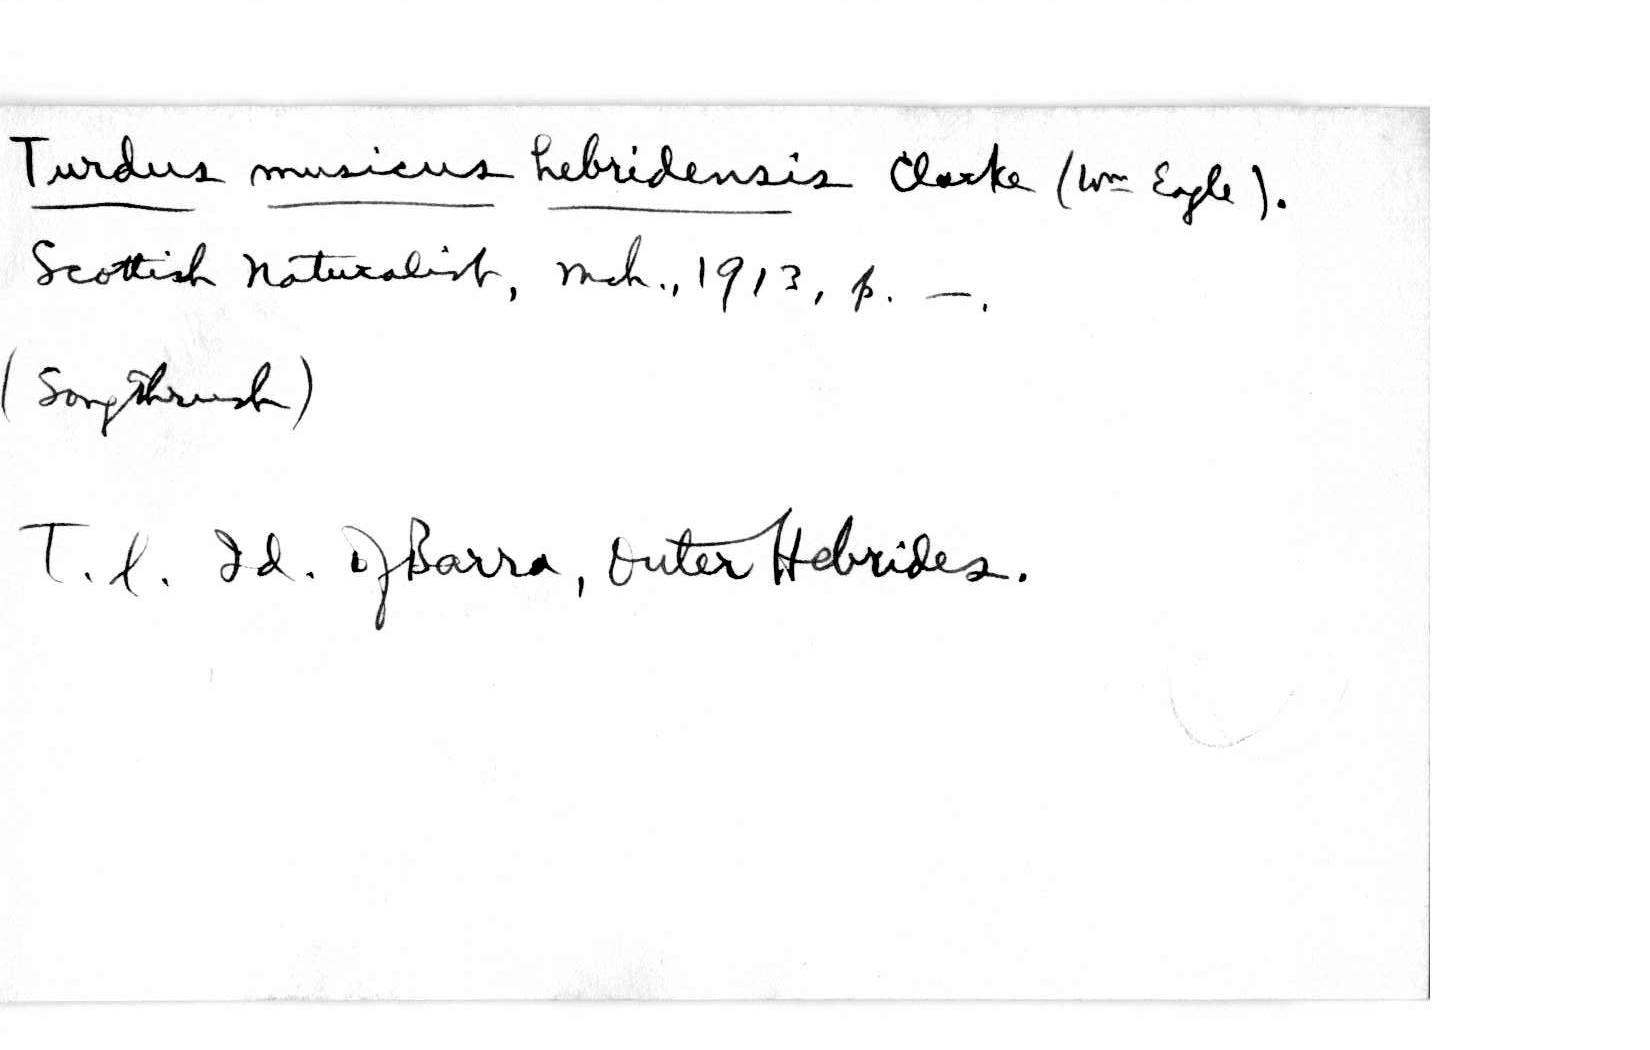 Turdus musicus hebridensis Clarke (Wm Eagle).
Scottish Naturalist, Mch., 1913, p. —.
(Song Thrush)
T. l. Id. of Barra, Outer Hebrides.